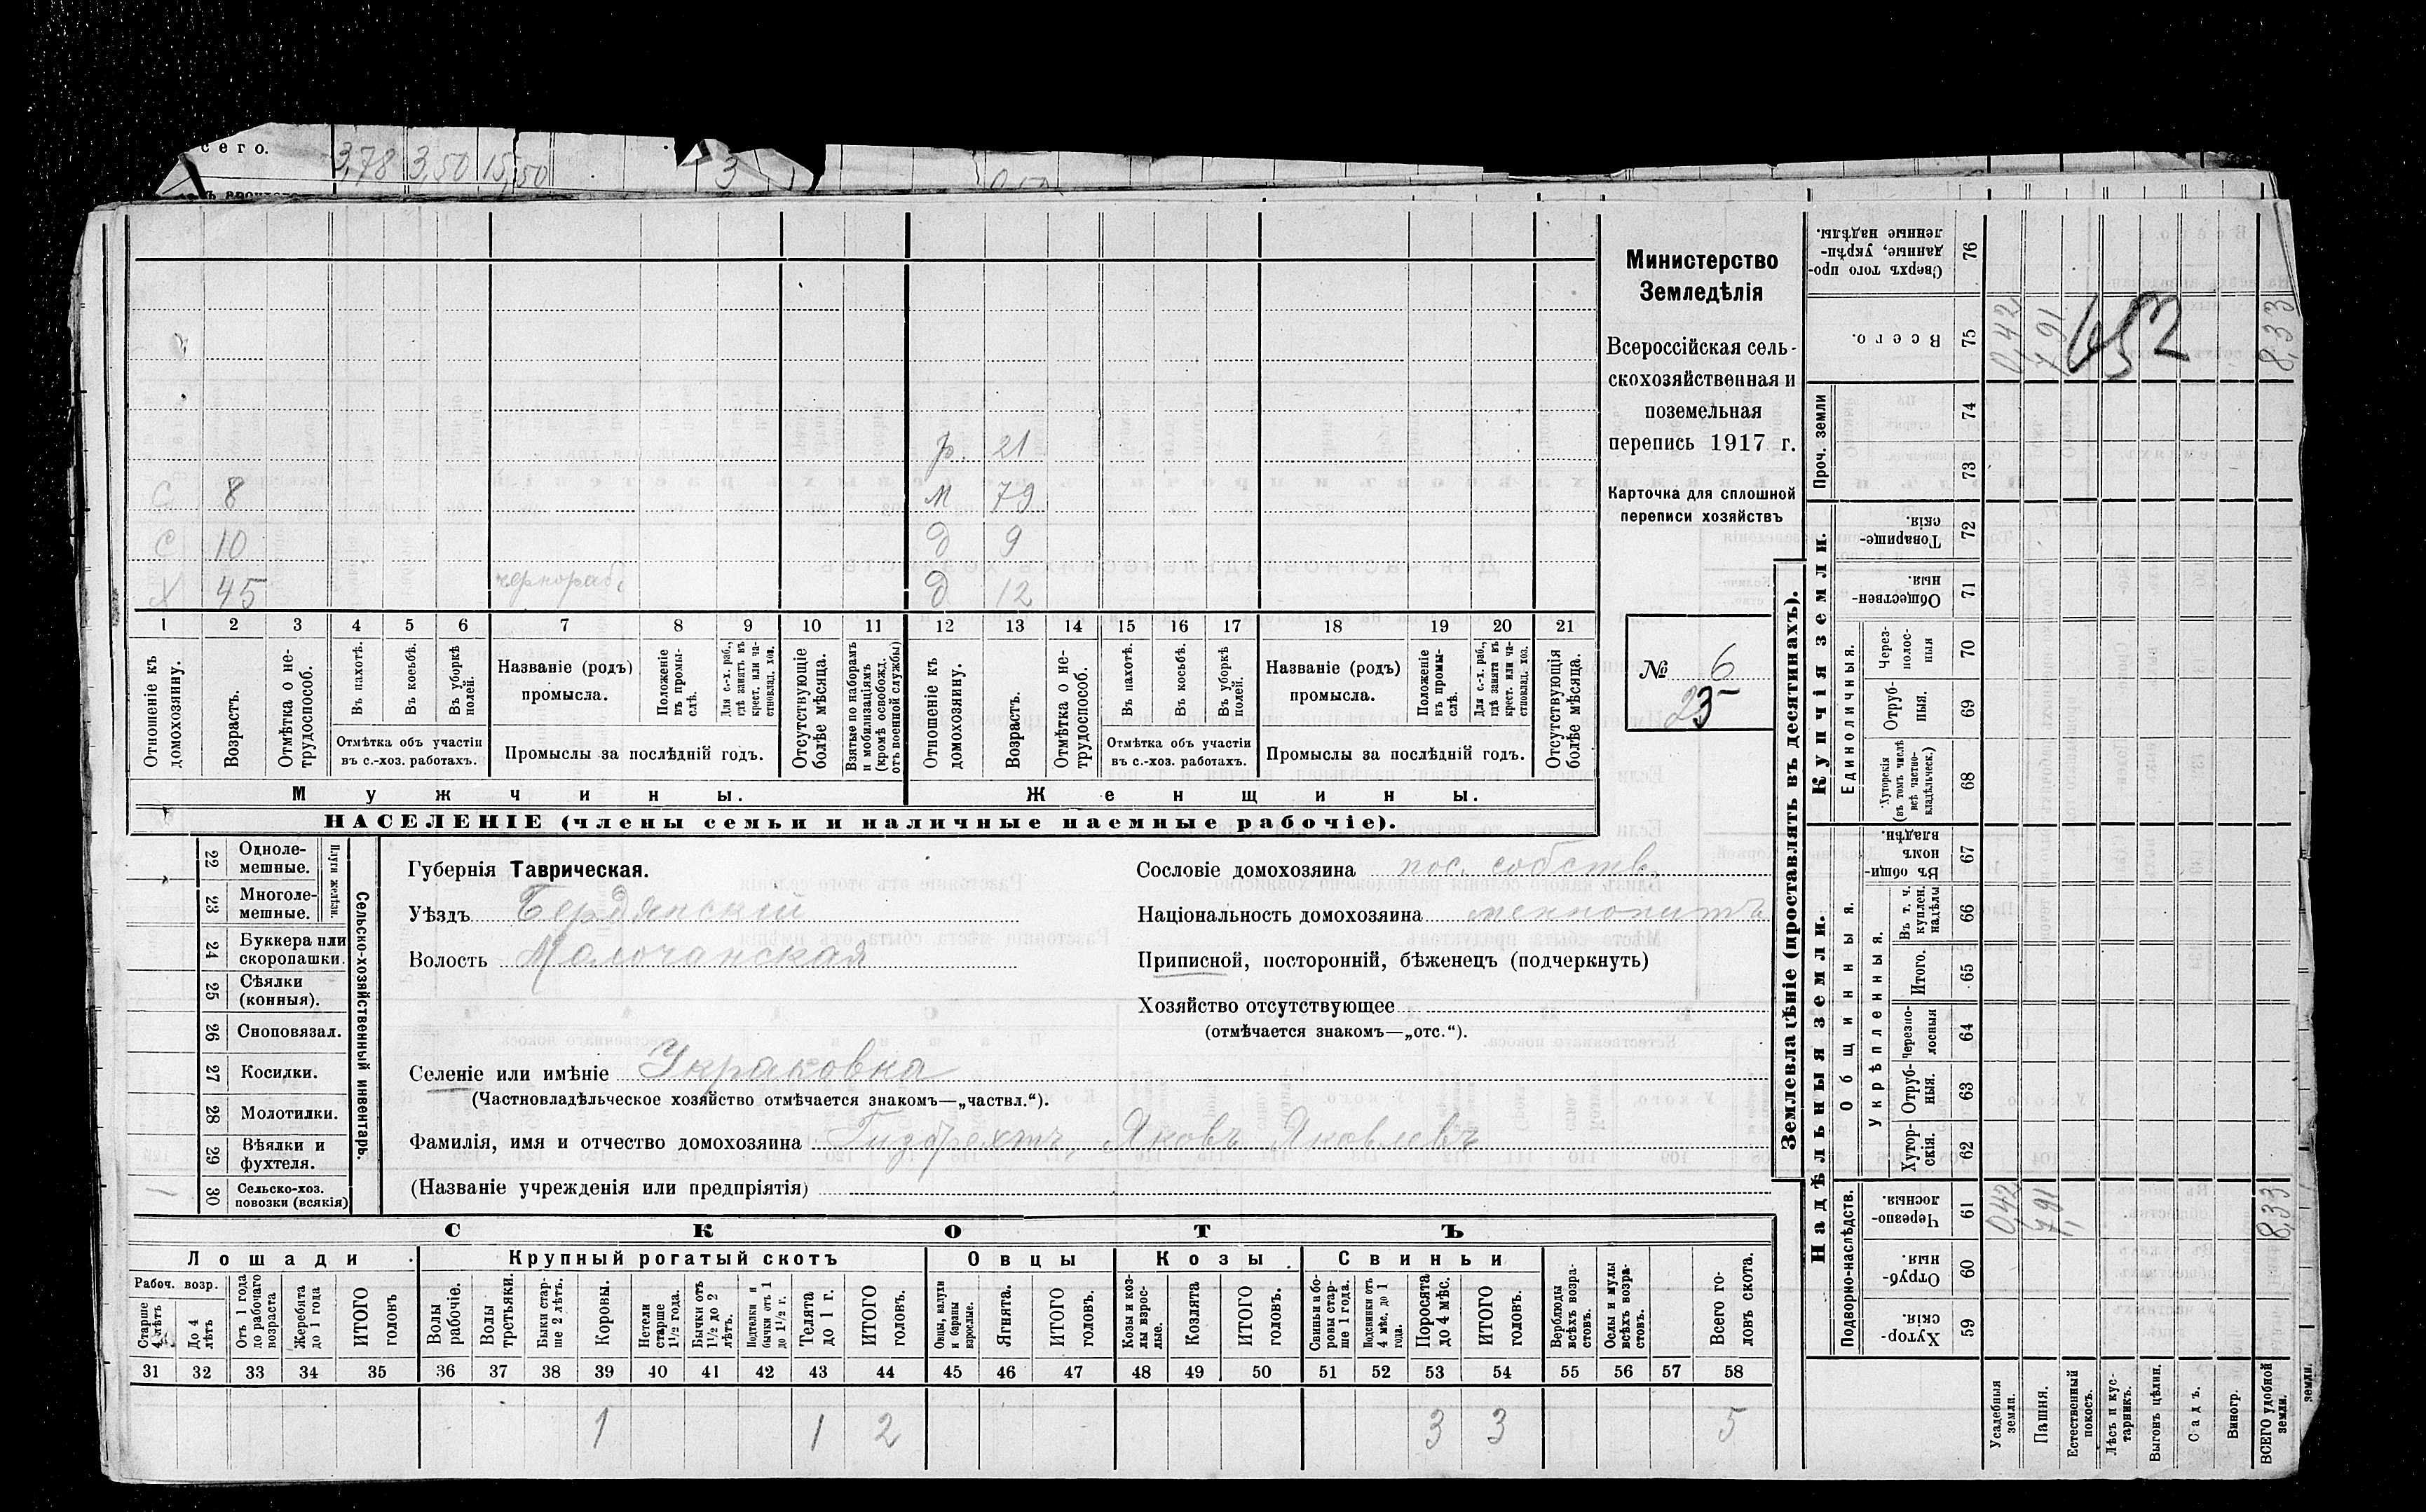 сего.
3,78 3,50 15,50 3
р. 21
С 8 м 79
С 10 д 9
Х 45 чернораб. д 12
1 2 3 4 5 6 7 8 9 10 11 12 13 14 15 16 17 18 19 20 21
Отношеніе къ домохозяину.
Возрастъ.
Отмѣтка о не-
трудоспособ.
Въ пахотѣ.
Въ косьбѣ.
Въ уборкѣ
полей.
Отмѣтка объ участіи
въ с.-хоз. работахъ.
Названіе (родъ)
промысла.
Положеніе
въ промы-
слѣ.
Для с.-х. раб.,
гдѣ занятъ въ
крест. или ча-
стновлад. хоз.
Промыслы за послѣдній годъ.
Отсутствующіе
болѣе мѣсяца.
Взятые по наборамъ
и мобилизаціямъ
(кромѣ освобожд.
отъ военной службы)
Отношеніе къ
домохозяину.
Возрастъ.
Отмѣтка о не-
трудоспособ.
Въ пахотѣ.
Въ косьбѣ.
Въ уборкѣ
полей.
Отмѣтка объ участіи
въ с.-хоз. работахъ.
Названіе (родъ)
промысла.
Положеніе
въ промы-
слѣ.
Для с.-х. раб.,
гдѣ занята въ
крест. или ча-
стновлад. хоз.
Промыслы за послѣдній годъ.
Отсутствующія
болѣе мѣсяца.
Мужчины. Женщины.
НАСЕЛЕНІЕ (члены семьи и наличные наемные рабочіе).
Министерство
Земледѣлія
Всероссійская сель-
скохозяйственная и
поземельная
перепись 1917 г.
Карточка для сплошной
переписи хозяйствъ
№ 6
23
22 Одноле-
мешные.
23 Многоле-
мешные.
Плуги желѣзн.
24 Буккера или
скоропашки.
25 Сѣялки
(конныя).
26 Сноповязал.
27 Косилки.
28 Молотилки.
29 Вѣялки и
фухтеля.
1 30 Сельско-хоз.
повозки (всякія)
Сельско-хозяйственный инвентарь.
Губернія Таврическая.
Уѣздъ Бердянскій
Волость Молочанская
Сословіе домохозяина пос. собств
Національность домохозяина меннонитъ
Приписной, посторонній, бѣженецъ (подчеркнуть)
Хозяйство отсутствующее
(отмѣчается знакомъ—„отс.“).
Селеніе или имѣніе
(Частновладѣльческое хозяйство отмѣчается знакомъ—„частвл.“).
Фамилія, имя и отчество домохозяина Гизбрехтъ Яковъ Яковлевъ
(Названіе учрежденія или предпріятія)
СКОТЪ
Лошади Крупный рогатый скотъ Овцы Козы. Свиньи
Рабоч. возр.
Старше
4 лѣтъ
До 4
лѣтъ
Отъ 1 года
до рабочаго
возраста
Жеребята
до 1 года
ИТОГО
головъ
Волы
рабочіе.
Волы
третьяки.
Быки стар-
ше 2 лѣтъ.
Коровы.
Нетели
старше
1½ года.
Бычки отъ
1½ до 2
лѣтъ.
Подтелки и
бычки отъ 1
до 1½ г.
Телята
до 1 г.
ИТОГО
головъ.
Овцы, валухи
и бараны
взрослые.
Ягнята.
ИТОГО
головъ.
Козы и коз-
лы взрос-
лые.
Козлята
ИТОГО
головъ.
Свиньи и бо-
ровы стар-
ше 1 года.
Подсвинки отъ
4 мѣс. до 1
года.
Поросята
до 4 мѣс.
ИТОГО
головъ.
Верблюды
всѣхъ возра-
стовъ.
Ослы и мулы
всѣхъ возра-
стовъ.
Всего го-
ловъ скота.
31 32 33 34 35 36 37 38 39 40 41 42 43 44 45 46 47 48 49 50 51 52 53 54 55 56 57 58
1 1 2 3 3 5
Землевладѣніе (проставлять въ десятинахъ).
Сверхъ того про-
данные, укрѣп-
ленные надѣлы. 76
Всего. 75 0,42 7,91 8,33
652
Проч. земли
74
73
Купчія земли.
Товарище-
скія. 72
Обществен-
ныя. 71
Единоличныя.
Через-
полос-
ныя 70
Отруб-
ныя. 69
Хуторскія
(въ томъ числѣ
всѣ частно-
владѣльческ.) 68
Надѣльныя земли.
Общинныя.
Въ общи-
номъ
владѣн. 67
Укрѣпленныя.
Въ т. ч.
куплен.
надѣлы 66
Итого. 65
Черезпо-
лосныя 64
Отруб-
ныя. 63
Хутор-
скія. 62
Подворно-наслѣдств.
Черезпо-
лосныя. 61 0,42 7,91 8,33
Отруб-
ныя. 60
Хутор-
скія. 59
Усадебныя
земли.
Пашня.
Естественный
покосъ.
Лѣсъ и кус-
тарникъ.
Выгонъ цѣлин.
Садъ.
Виногр.
ВСЕГО удобной
земли.
земли.